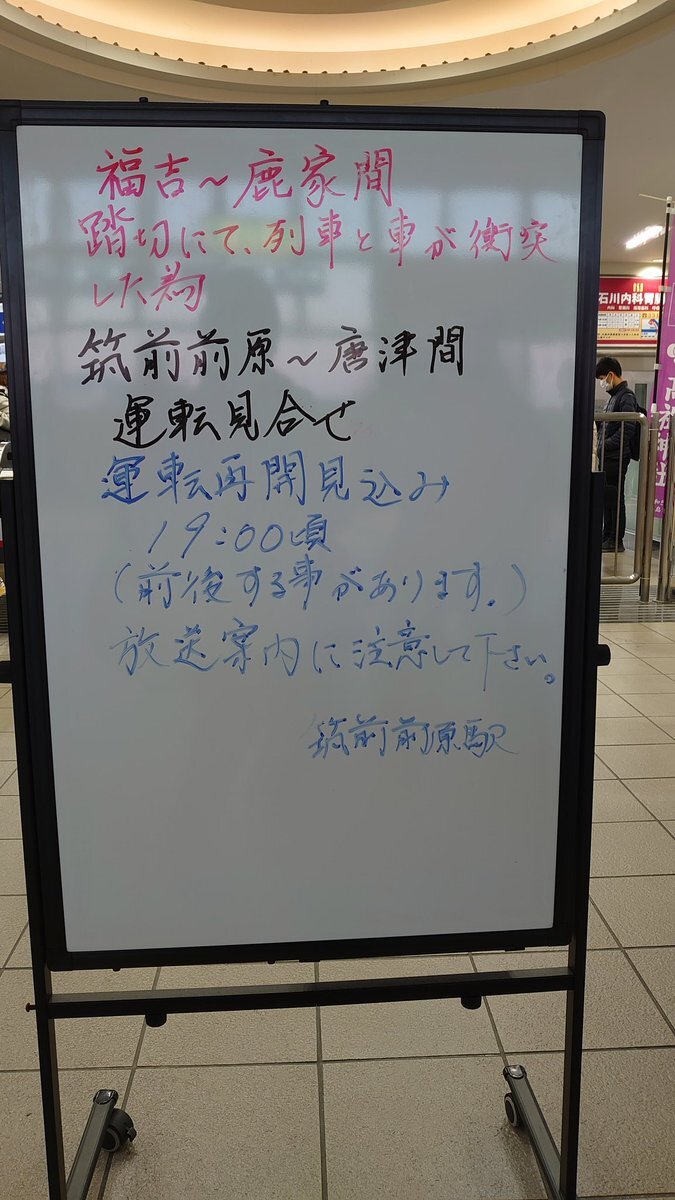 福吉~鹿家間
踏切にて、列車と車が衝突
した為
筑前前原~唐津間
運転見合せ
運転再開見込み
19:00頃
(前後する事があります。)
放送案内に注意して下さい。
筑前前原駅
石川内科胃腸